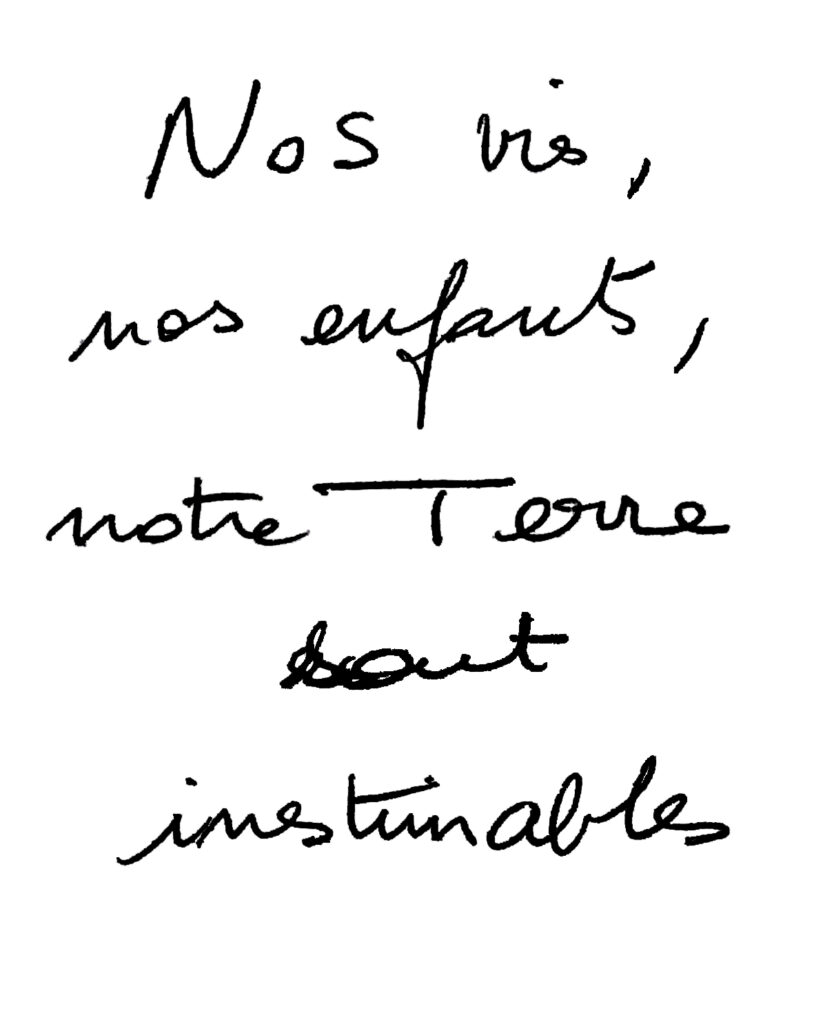 Nos vis,
nos enfants,
notre Terre
sont
inestimables